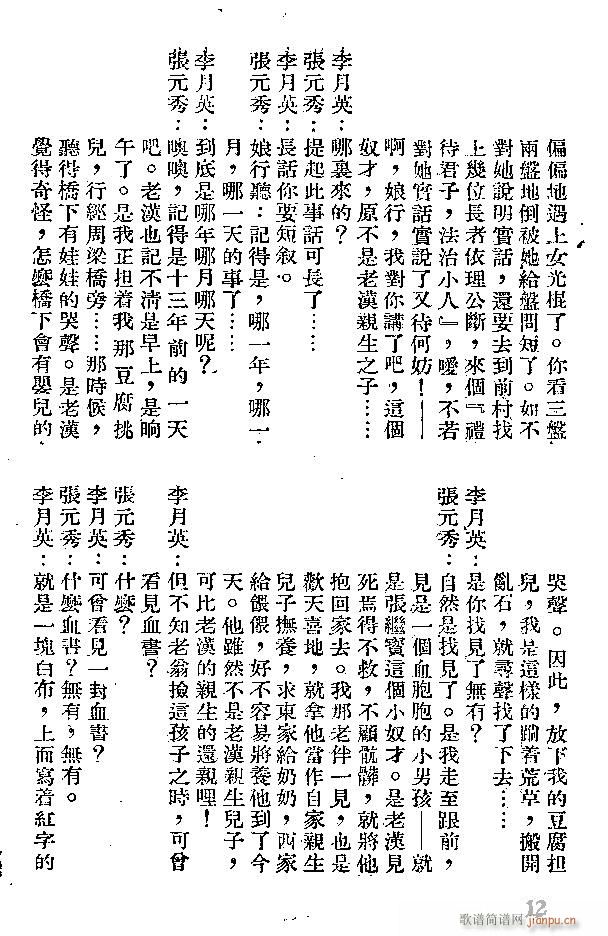 偏偏地遇上女光棍了。你看三盤
兩盤地倒被她給盤問短了。如不
對她說明實話，還要去到前村找
上幾位長者依理公斷，來個『禮
待君子，法治小人』，噯，不若
對她實話實說了又待何妨！——
啊，娘行，我對你講了吧，這個
奴才，原不是老漢親生之子……
李月英：哪裏來的？
張元秀：提起此事話可長了……
李月英：長話你要短叙。
張元秀：娘行聽：記得是，哪一年，哪一
月，哪一天的事了……
李月英：到底是哪年哪月哪天呢？
張元秀：噢噢，記得是十三年前的一天
吧。老漢也記不清是早上，是晌
午了。是我正担着我那豆腐挑
兒，行經周梁橋旁……那時候，
聽得橋下有娃娃的哭聲。是老漢
覺得奇怪，怎麼橋下會有嬰兒的
哭聲。因此，放下我的豆腐担
兒，我是這樣的蹦着荒草，搬開
亂石，就尋聲找了下去……
李月英：是你找見了無有？
張元秀：自然是找見了。是我走至跟前，
見是一個血胞胞的小男孩——就
是張繼寶這個小奴才。是老漢見
死焉得不救，不顧骯髒，就將他
抱回家去。我那老伴一見，也是
歡天喜地，就拿他當作自家親生
兒子撫養，求東家給奶奶，西家
給餵餵，好不容易將養他到了今
天。他雖然不是老漢親生兒子，
可比老漢的親生的還親哩！
李月英：但不知老翁撿這孩子之時，可曾
看見血書？
張元秀：什麼？
李月英：可曾看見一封血書？
張元秀：什麼血書？無有，無有。
李月英：就是一塊白布，上面寫着紅字的
12
歌谱简谱网
jianpu.cn